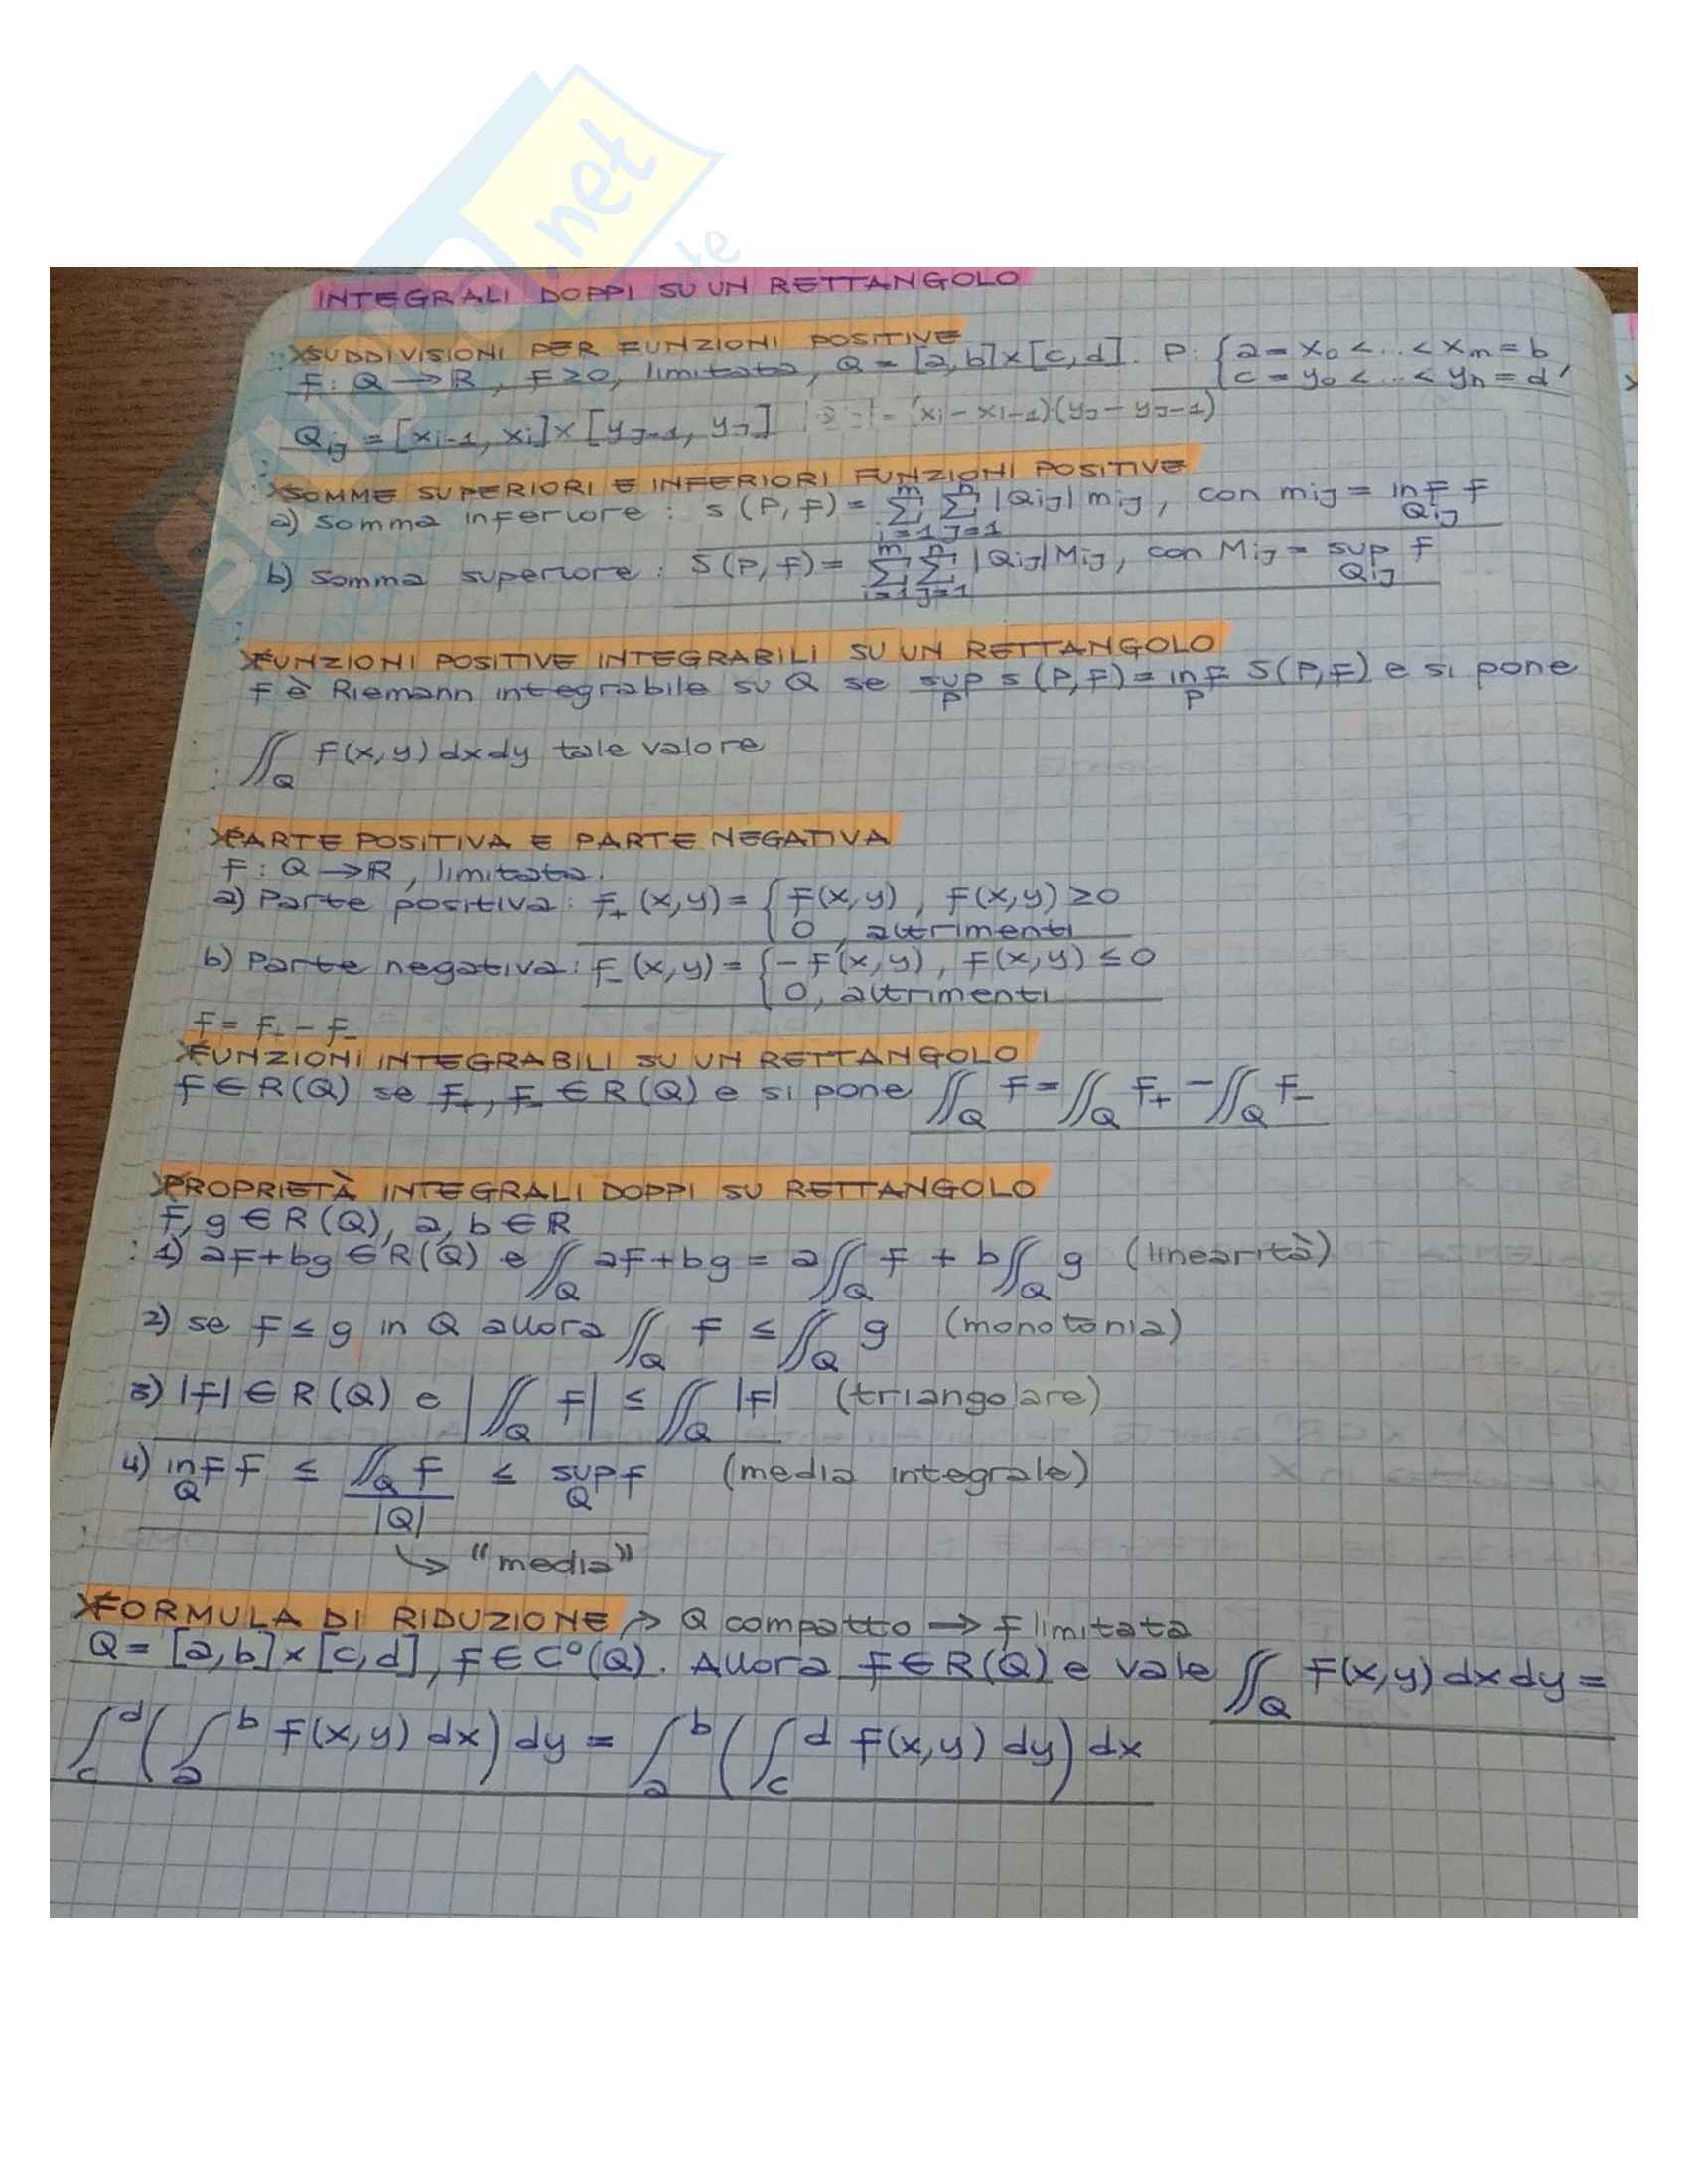 INTEGRALI DOPPI SU UN RETTANGOLO
SUDDIVISIONI PER FUNZIONI POSITIVE
f: Q → ℝ, f ≥ 0, limitata, Q = [a,b]×[c,d]. P: { a = x₀ < ... < xₘ = b, c = y₀ < ... < yₙ = d
Qij = [xi-1, xi]×[yj-1, yj] |Qij| = (xi - xi-1)(yj - yj-1)
SOMME SUPERIORI E INFERIORI FUNZIONI POSITIVE
a) somma inferiore: s(P,f) = Σ(i=1..m) Σ(j=1..n) |Qij| mij, con mij = inf_Qij f
b) somma superiore: S(P,f) = Σ(i=1..m) Σ(j=1..n) |Qij| Mij, con Mij = sup_Qij f
FUNZIONI POSITIVE INTEGRABILI SU UN RETTANGOLO
f è Riemann integrabile su Q se sup_P s(P,f) = inf_P S(P,f) e si pone
∬_Q f(x,y) dxdy tale valore
PARTE POSITIVA E PARTE NEGATIVA
f: Q → ℝ, limitata.
a) Parte positiva: f₊(x,y) = { f(x,y), f(x,y) ≥ 0
0, altrimenti
b) Parte negativa: f₋(x,y) = { -f(x,y), f(x,y) ≤ 0
0, altrimenti
f = f₊ - f₋
FUNZIONI INTEGRABILI SU UN RETTANGOLO
f ∈ R(Q) se f₊, f₋ ∈ R(Q) e si pone ∬_Q f = ∬_Q f₊ - ∬_Q f₋
PROPRIETÀ INTEGRALI DOPPI SU RETTANGOLO
f, g ∈ R(Q), a, b ∈ ℝ
1) af+bg ∈ R(Q) e ∬_Q af+bg = a∬_Q f + b∬_Q g (linearità)
2) se f ≤ g in Q allora ∬_Q f ≤ ∬_Q g (monotonia)
3) |f| ∈ R(Q) e |∬_Q f| ≤ ∬_Q |f| (triangolare)
4) inf_Q f ≤ ∬_Q f / |Q| ≤ sup_Q f (media integrale)
↳ "media"
FORMULA DI RIDUZIONE → Q compatto → f limitata
Q = [a,b]×[c,d], f ∈ C⁰(Q). Allora f ∈ R(Q) e vale ∬_Q f(x,y) dxdy =
∫_c^d (∫_a^b f(x,y) dx) dy = ∫_a^b (∫_c^d f(x,y) dy) dx